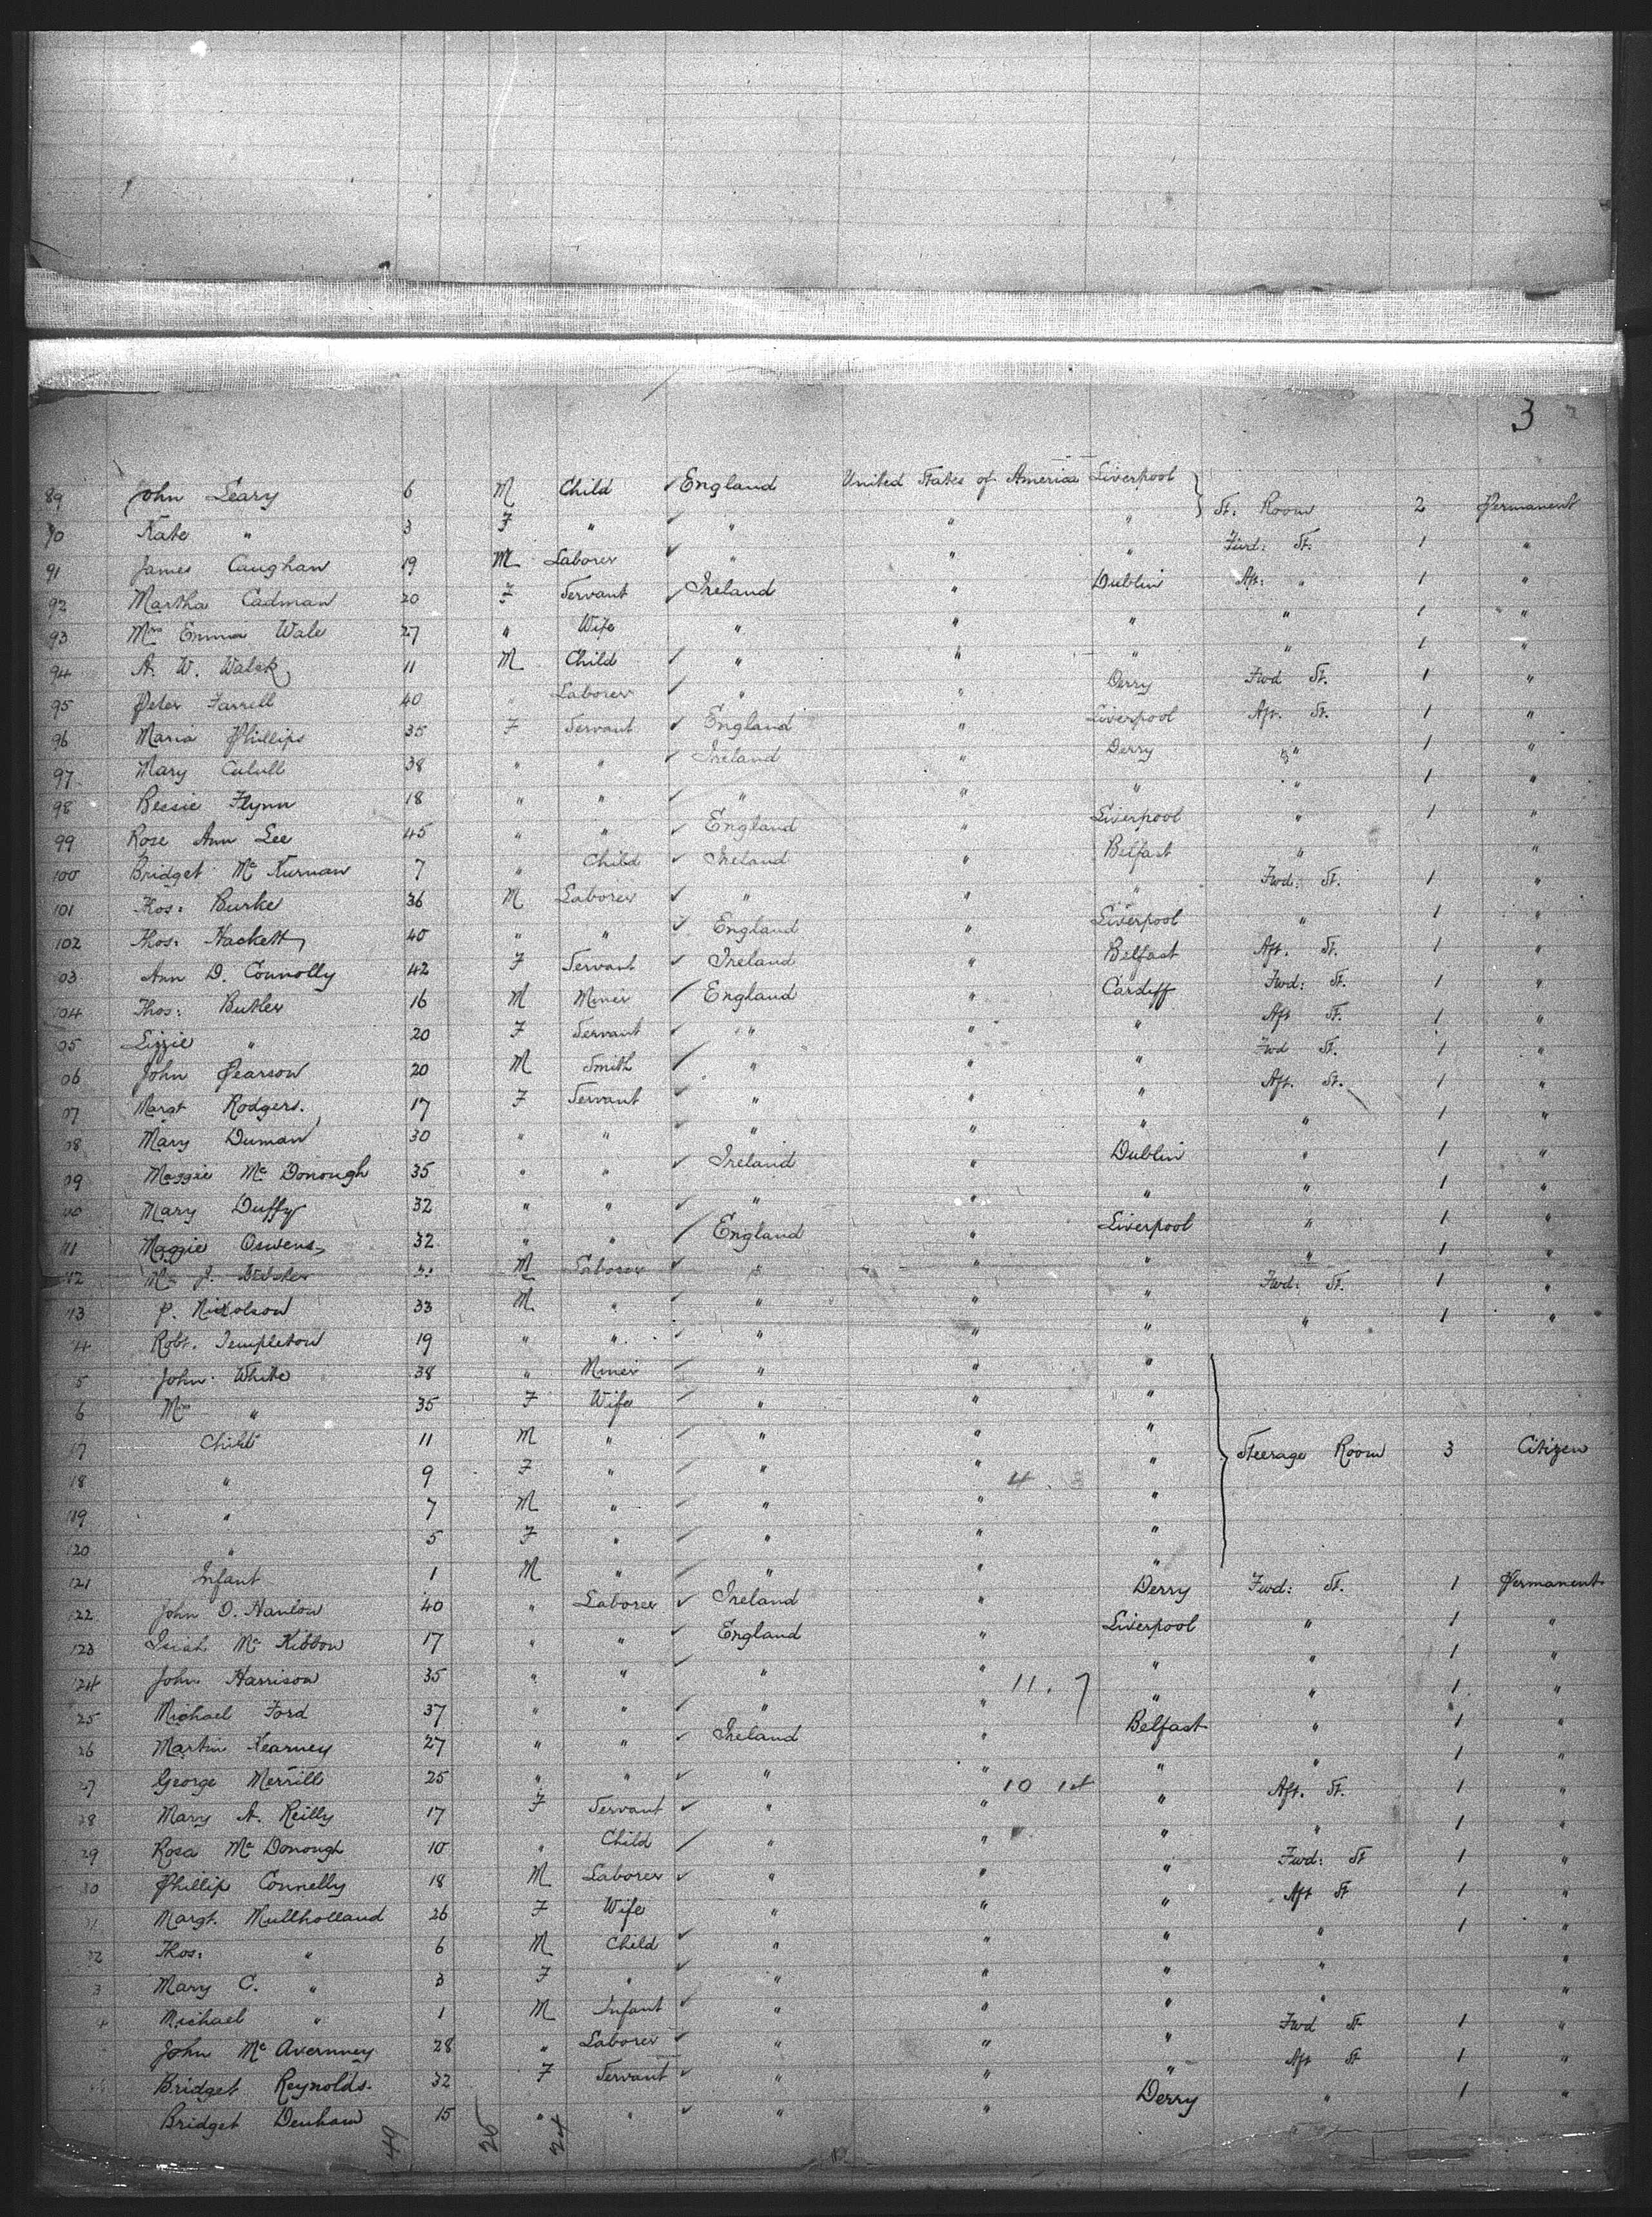 3
89 John Leary 6 M Child ✓ England United States of America Liverpool } St. Room 2 Permanent
90 Kate " 3 F " ✓ " " "
91 James Caughan 19 M Laborer ✓ " " " Fwd: St. 1 "
92 Martha Cadman 20 F Servant ✓ Ireland " Dublin Aft: " 1 "
93 Mrs Emma Wale 27 " Wife " " " " 1 "
94 A. W. 11 M Child ✓ " " " " 1 "
95 Peter Farrell 40 " Laborer ✓ " " Derry Fwd St. 1 "
96 Maria Phillips 35 F Servant ✓ England " Liverpool Aft. St. 1 "
97 Mary 38 " " ✓ Ireland " Derry " 1 "
98 Bessie Flynn 18 " " ✓ " " " " 1 "
99 Rose Ann Lee 45 " " ✓ England " Liverpool " 1 "
100 Bridget Mc Kurnan 7 " Child ✓ Ireland " Belfast " "
101 Thos: Burke 36 M Laborer ✓ " " " Fwd: St. 1 "
102 Thos. Hackett 40 " " ✓ England " Liverpool " 1 "
03 Ann D. Connolly 42 F Servant ✓ Ireland " Belfast Aft. St. 1 "
04 Thos: Butler 16 M Miner ✓ England " Cardiff Fwd: St. 1 "
05 Lizzie " 20 F Servant ✓ " " " Aft St. 1 "
06 John Pearson 20 M Smith ✓ " " " Fwd St. 1 "
07 Margt Rodgers. 17 F Servant ✓ " " " Aft. St. 1 "
08 Mary Duman 30 " " ✓ " " " " 1 "
09 Maggie Mc Donough 35 " " ✓ Ireland " Dublin " 1 "
10 Mary Duffy 32 " " ✓ " " " " 1 "
11 Maggie Oswens 32 " " ✓ England " Liverpool " 1 "
12 J. M Laborer ✓ " " " " 1 "
13 P. Nickolson 33 M " ✓ " " " Fwd: St. 1 "
14 Robt. Templeton 19 " " ✓ " " " " 1 "
5 John White 38 " Miner ✓ " " "
6 Mrs " 35 F Wife ✓ " " "
17 Child 11 M " ✓ " " "
18 " 9 F " ✓ " " " } Steerage Room 3 Citizen
4
119 " 7 M " ✓ " " "
120 " 5 F " ✓ " " "
121 Infant 1 M " ✓ " " "
122 John O. Hanlow 40 " Laborer ✓ Ireland " Derry Fwd: St. 1 Permanent
123 Isiah Mc Kibbon 17 " " ✓ England " Liverpool " 1 "
124 John Harrison 35 " " ✓ " " " " 1 "
11. 7
25 Michael Ford 37 " " ✓ " " " " 1 "
26 Martin Kearney 27 " " ✓ Ireland " Belfast " 1 "
27 George Merrill 25 " " ✓ " " " " 1 "
10 1st
28 Mary A. Reilly 17 F Servant ✓ " " " Aft. St. 1 "
29 Rosa Mc Donough 10 " Child ✓ " " " " 1 "
30 Phillip Connelly 18 M Laborer ✓ " " " Fwd: St 1 "
31 Margt. Mullholland 26 F Wife " " " Aft St 1 "
32 Thos: " 6 M Child ✓ " " " " 1 "
3 Mary C. " 3 F " ✓ " " " " "
4 Michael " 1 M Infant ✓ " " " " "
John Mc Avernney 28 " Laborer ✓ " " " Fwd St 1 "
Bridget Reynolds. 32 F Servant ✓ " " " Aft St 1 "
Bridget Denham 15 " " ✓ " " Derry " 1 "
49 25 24